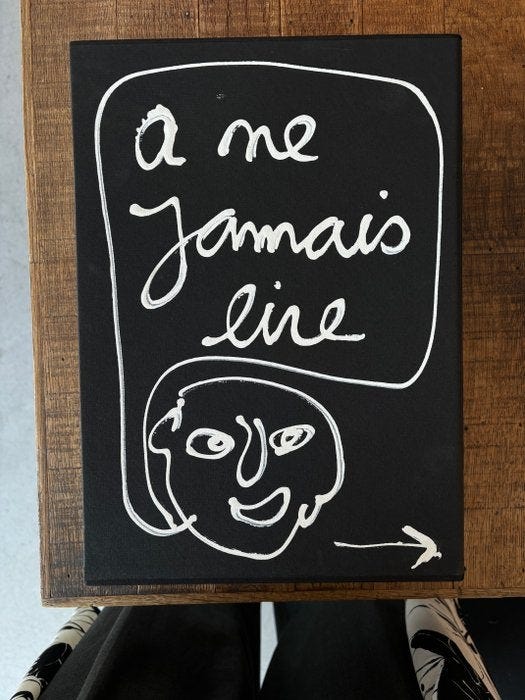 a ne
Jamais
lire